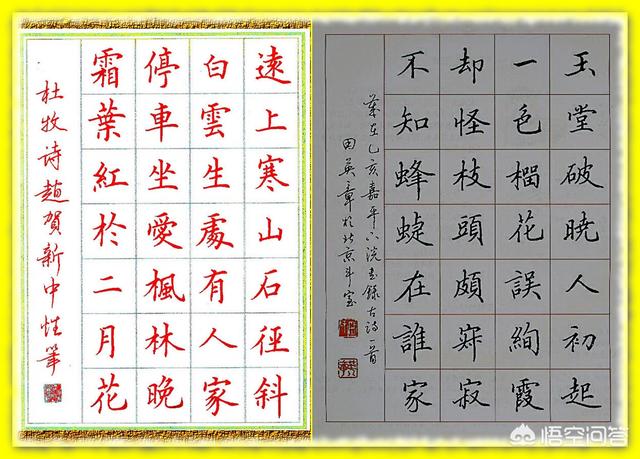 遠上寒山石徑斜
白雲生處有人家
停車坐愛楓林晚
霜葉紅於二月花
杜牧诗趙賀新中性筆
玉堂破曉人初起
一色榴花誤絢霞
却怪枝頭頗寂
不知蜂蜨在誰家
歲在乙亥嘉平下浣書錄古詩一首
田英章於北京斗室
悟空问答